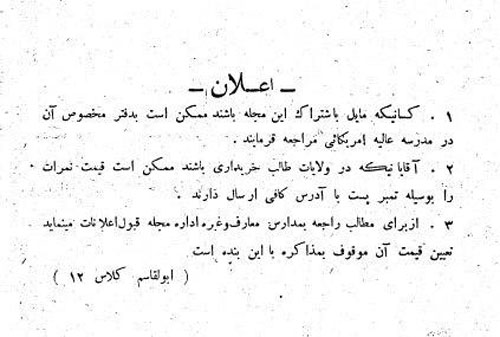 ـ اعـلان ـ
۱ . کسانیکه مایل باشتراك این مجله باشند ممکن است بدفتر مخصوص آن
در مدرسه عالیه امریکائی مراجعه فرمایند .
۲ . آقایانیکه در ولایات طالب خریداری باشند ممکن است قیمت نمرات
را بوسیله تمبر پست با آدرس کافی ارسال دارند .
۳ . از برای مطالب راجعه بمدارس معارف وغیره اداره مجله قبول اعلانات مینماید
تعیین قیمت آن موقوف بمذاکره با این بنده است
( ابوالقاسم کلاس ۱۲ )